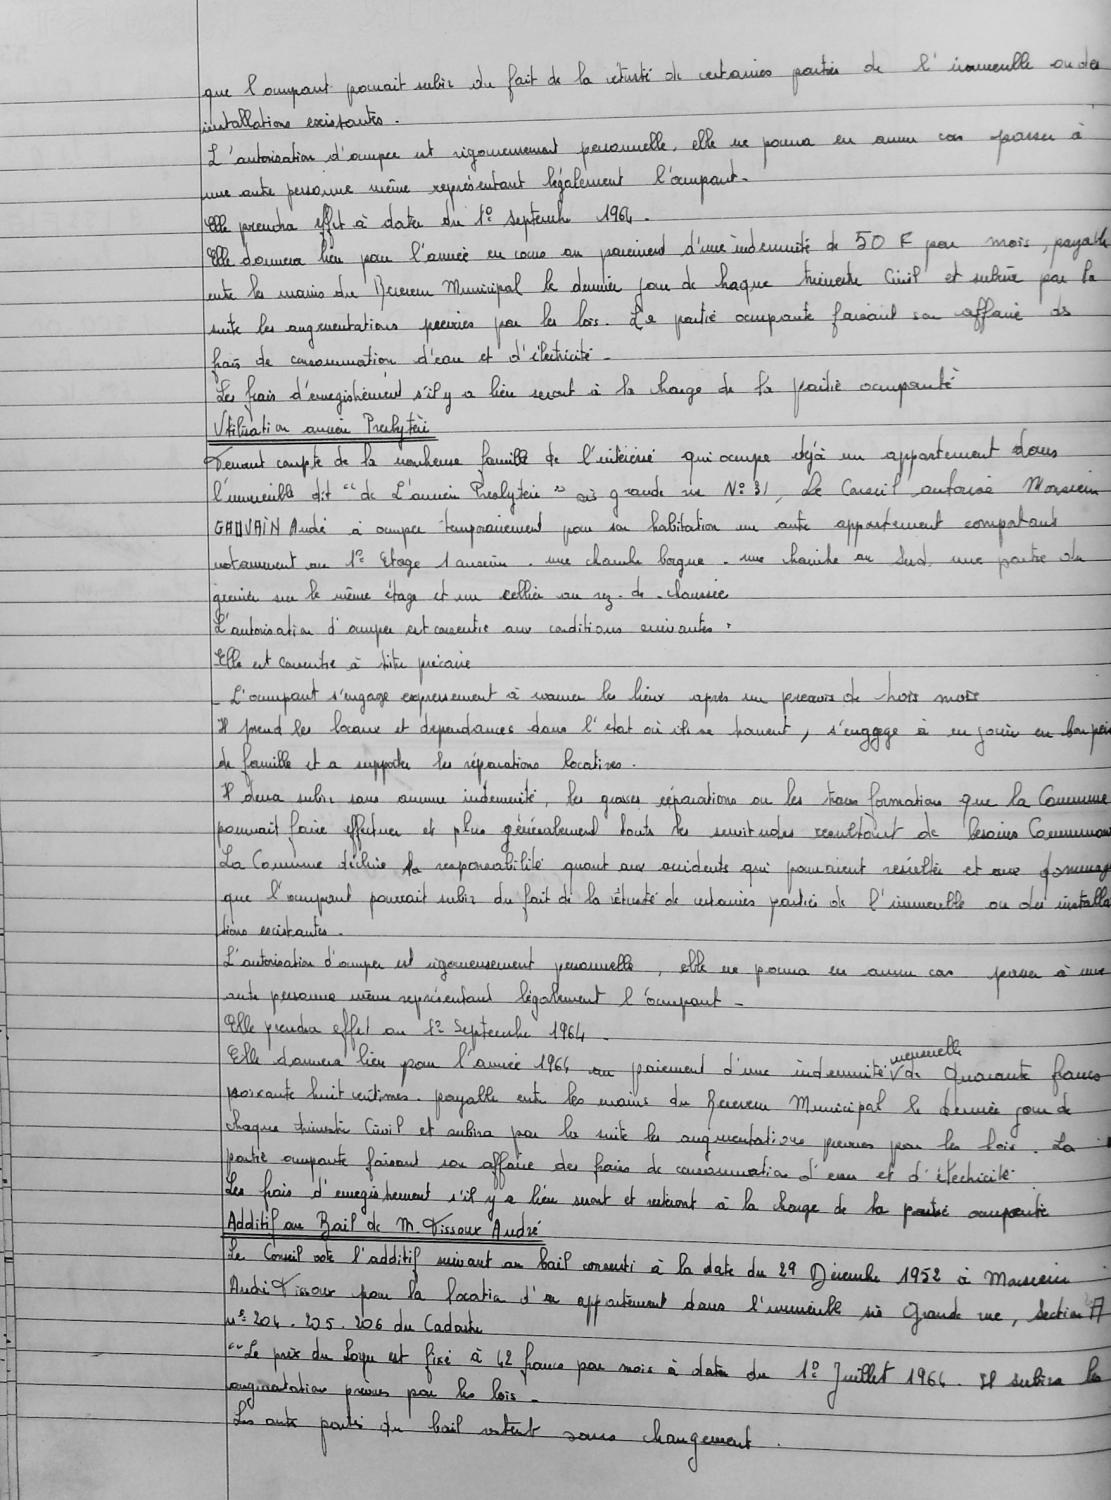 que l'occupant pourrait subir du fait de la vétusté de certaines parties de l'immeuble ou des
installations existantes.
L'autorisation d'occuper est rigoureusement personnelle, elle ne pourra en aucun cas passer à
une autre personne même représentant légalement l'occupant.
Elle prendra effet à dater du 1er Septembre 1964.
Elle donnera lieu pour l'année en cours au paiement d'une indemnité de 50 F par mois, payable
entre les mains du Receveur Municipal le dernier jour de chaque trimestre Civil et subira par la
suite les augmentations prévues par les lois. La partie occupante faisant son affaire des
frais de consommation d'eau et d'électricité.
Les frais d'enregistrement s'il y a lieu seront à la charge de la partie occupante
Utilisation ancien Presbytère
Tenant compte de la nombreuse famille de l'intéressé qui occupe déjà un appartement dans
l'immeuble dit "de L'ancien Presbytère" sis grande rue N° 31, Le Conseil autorise Monsieur
GAUVAIN André à occuper temporairement pour son habitation un autre appartement comportant
notamment au 1er Etage 1 ancien . une chambre borgne . une chambre au Sud, une partie du
grenier sur le même étage et un cellier au rez-de-chaussée
L'autorisation d'occuper est consentie aux conditions suivantes.
Elle est consentie à titre précaire
- L'occupant s'engage expressement à vider les lieux après un préavis de trois mois
Il prend les locaux et dépendances dans l'état où ils se trouvent, s'engage à en jouir en bon père
de famille et a supporter les réparations locatives.
Il devra subir sans aucune indemnité, les grosses réparations ou les transformations que la Commune
pourrait faire effectuer et plus généralement toutes les servitudes résultant de besoins Communaux
La Commune décline la responsabilité quant aux accidents qui pourraient résulter et aux dommages
que l'occupant pourrait subir du fait de la vétusté de certaines parties de l'immeuble ou des installa
tions existantes.
L'autorisation d'occuper est rigoureusement personnelle, elle ne pourra en aucun cas passer à une
autre personne même représentant légalement l'occupant -
Elle prendra effet au 1er Septembre 1964.
Elle donnera lieu pour l'année 1964 au paiement d'une indemnité mensuelle de Quarante francs
soixante huit centimes. payable entre les mains du Receveur Municipal le dernier jour de
chaque trimestre Civil et subira par la suite les augmentations prévues par les lois. La
partie occupante faisant son affaire des frais de consommation d'eau et d'électricité.
Les frais d'enregistrement s'il y a lieu seront et resteront à la charge de la partie occupante
Additif au Bail de M. Tissoux André
Le Conseil vote l'additif suivant au bail consenti à la date du 29 Décembre 1952 à Monsieur
André Tissoux pour la location d'un appartement dans l'immeuble sis Grande rue, Section A
n°s 204. 205. 206 du Cadastre
"Le prix du Loyer est fixé à 42 francs par mois à dater du 1er Juillet 1964. Il subira les
augmentations prévues par les lois -
Les autres parties du bail restent sans changement.